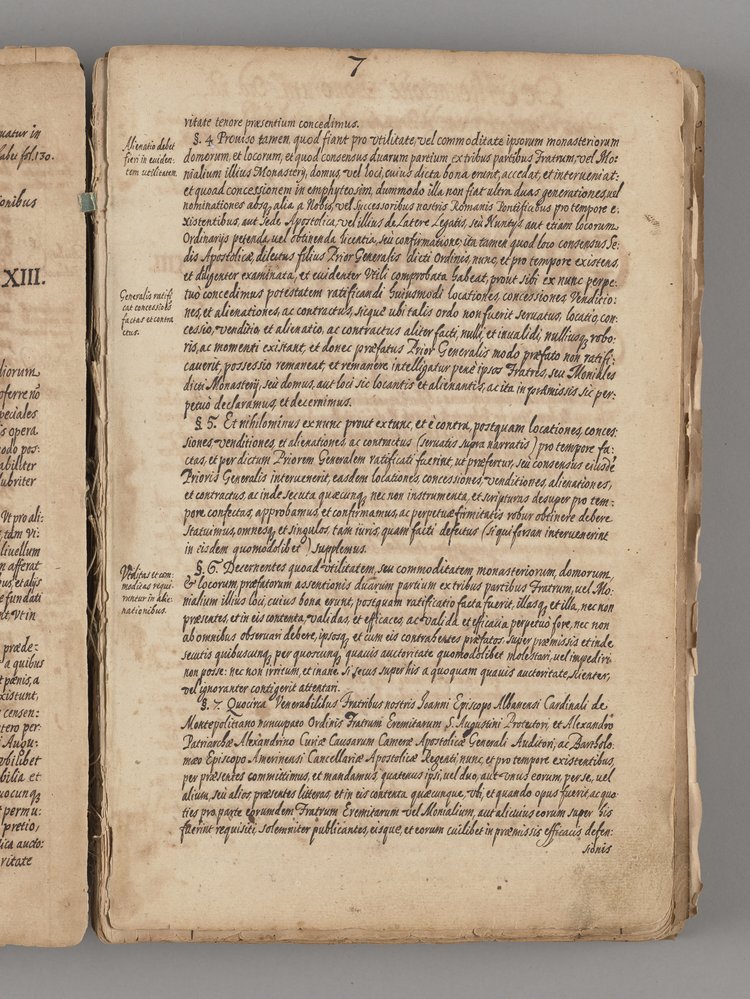 uatur in
fol. 130.
onibus
XIII.
liorum
oferre nō
peciales
is opera
modo pos:
abiliter
lubriter
Vt pro ali:
liuellum
afferat
fundati
Vt in
præde-
a quibus
pœnis, a
xistunt,
censen:
tero per:
Augu:
obilibet
bilia et
uocunq
permu:
pretio,
ica aucto:
ritate
7
vitate tenore præsentium concedimus.
Alienatio debet
fieri in euiden-
tem utilitatem
§. 4 Prouiso tamen, quod fiant pro vtilitate, vel commoditate ipsorum monasteriorum
domorum, et locorum, et quod consensus duarum partium ex tribus partibus Fratrum, vel Mo-
nialium illius Monasterÿ, domus, vel loci, cuius dicta bona erunt, accedat, et interueniat:
et quoad concessionem in emphyteosim, dummodo illa non fiat ultra duas generationes, vel
nominationes absq, alia a Nobis, vel Successoribus nostris Romanis Pontificibus pro tempore e:
xistentibus, aut Sede Apostolica, vel illius de Latere Legatis, seù Nuntÿs aut etiam locorum
Ordinarÿs petenda, vel obtinenda licentia, seù confirmatione, ita tamen quod loco consensus Se-
dis Apostolicæ, dilectus filius Prior Generalis dicti Ordinis nunc, et pro tempore existens,
et diligenter examinata, et euidenter Vtili comprobata habeat, prout sibi ex nunc perpe-
Generalis ratifi
cat concessiões
factas et contra
ctus.
tuò concedimus potestatem ratificandi huiusmodi locationes, concessiones Venditio:
nes, et alienationes, ac contractus, sicque ubi talis ordo non fuerit seruatus, locatio, con-
cessio, venditio, et alienatio, ac contractus aliter facti, nulli, et inualidi, nulliusq, robo-
ris, ac momenti existant, et donec præfatus Prior Generalis modo præfato non ratifi-
cauerit, possessio remaneat, et remanere intelligatur penè ipsos Fratres, seu Moniales
dicti Monasterÿ, seù domus, aut loci sic locantis et alienantis, ac ita in præmissis sic per-
petuò declaramus, et decernimus.
§. 5. Et nihilominus ex nunc prout ex tunc, et è contra, postquam locationes, conces-
siones, venditiones, et alienationes, ac contractus (seruatis supra narratis) pro tempore fa:
ctas, et per dictum Priorem Generalem ratificati fuerint, ut præfertur, seù consensus eiusdē
Prioris Generalis interuenerit, easdem locationes, concessiones, venditiones, alienationes,
et contractus, ac inde secuta quæcunq, nec non instrumenta, et scripturas desuper pro tem-
pore confectas, approbamus et confirmamus, ac perpetuæ firmitatis robur obtinere debere
Statuimus, omnesq, et singulos, tam iuris, quam facti defectus (si qui forsan interuenerint
in eisdem quomodolibet) supplemus.
Vtilitas et com-
moditas requi-
runtur in alie-
nationibus.
§. 6. Decernentes quoad vtilitatem, seu commoditatem monasteriorum, domorum,
& locorum, præfatorum assentionis duarum partium ex tribus partibus Fratrum, vel Mo-
nialium illius loci, cuius bona erunt, postquam ratificatio facta fuerit, illasq, et illa, nec non
præsentes, et in eis contenta, validas, et efficaces, ac valida et efficacia perpetuò fore, nec non
ab omnibus obseruari debere, ipsosq, et cum eis contrahentes præfatos super præmissis et inde
secutis quibuscunq, per quoscunq, quauis auctoritate quomodolibet molestari, vel impediri
non posse: nec non irritum, et inane si secus super his a quoquam quauis auctoritate, scienter,
vel ignoranter contigerit attentari.
§. 7. Quocirca Venerabilibus Fratribus nostris Ioanni Episcopo Albanensi Cardinali de
Montepolitiano nuncupato Ordinis Fratrum Eremitarum S. Augustini Protectori, et Alexandro
Patriarchæ Alexandrino Curiæ Causarum Cameræ Apostolicæ Generali Auditori, ac Bartholo
mæo Episcopo Amerinensi Cancellariæ Apostolicæ Regenti nunc, et pro tempore existentibus,
per præsentes committimus, et mandamus, quatenus ipsi, vel duo, aut vnus eorum, per se, vel
alium, seù alios, præsentes litteras, et in eis contenta quæcunque, vbi, et quando opus fuerit, ac quo
ties pro parte eorumdem Fratrum Eremitarum vel Monialium, aut alicuius eorum super his
fuerint requisiti, solemniter publicantes, eisque, et eorum cuilibet in præmissis efficacis defen-
sionis